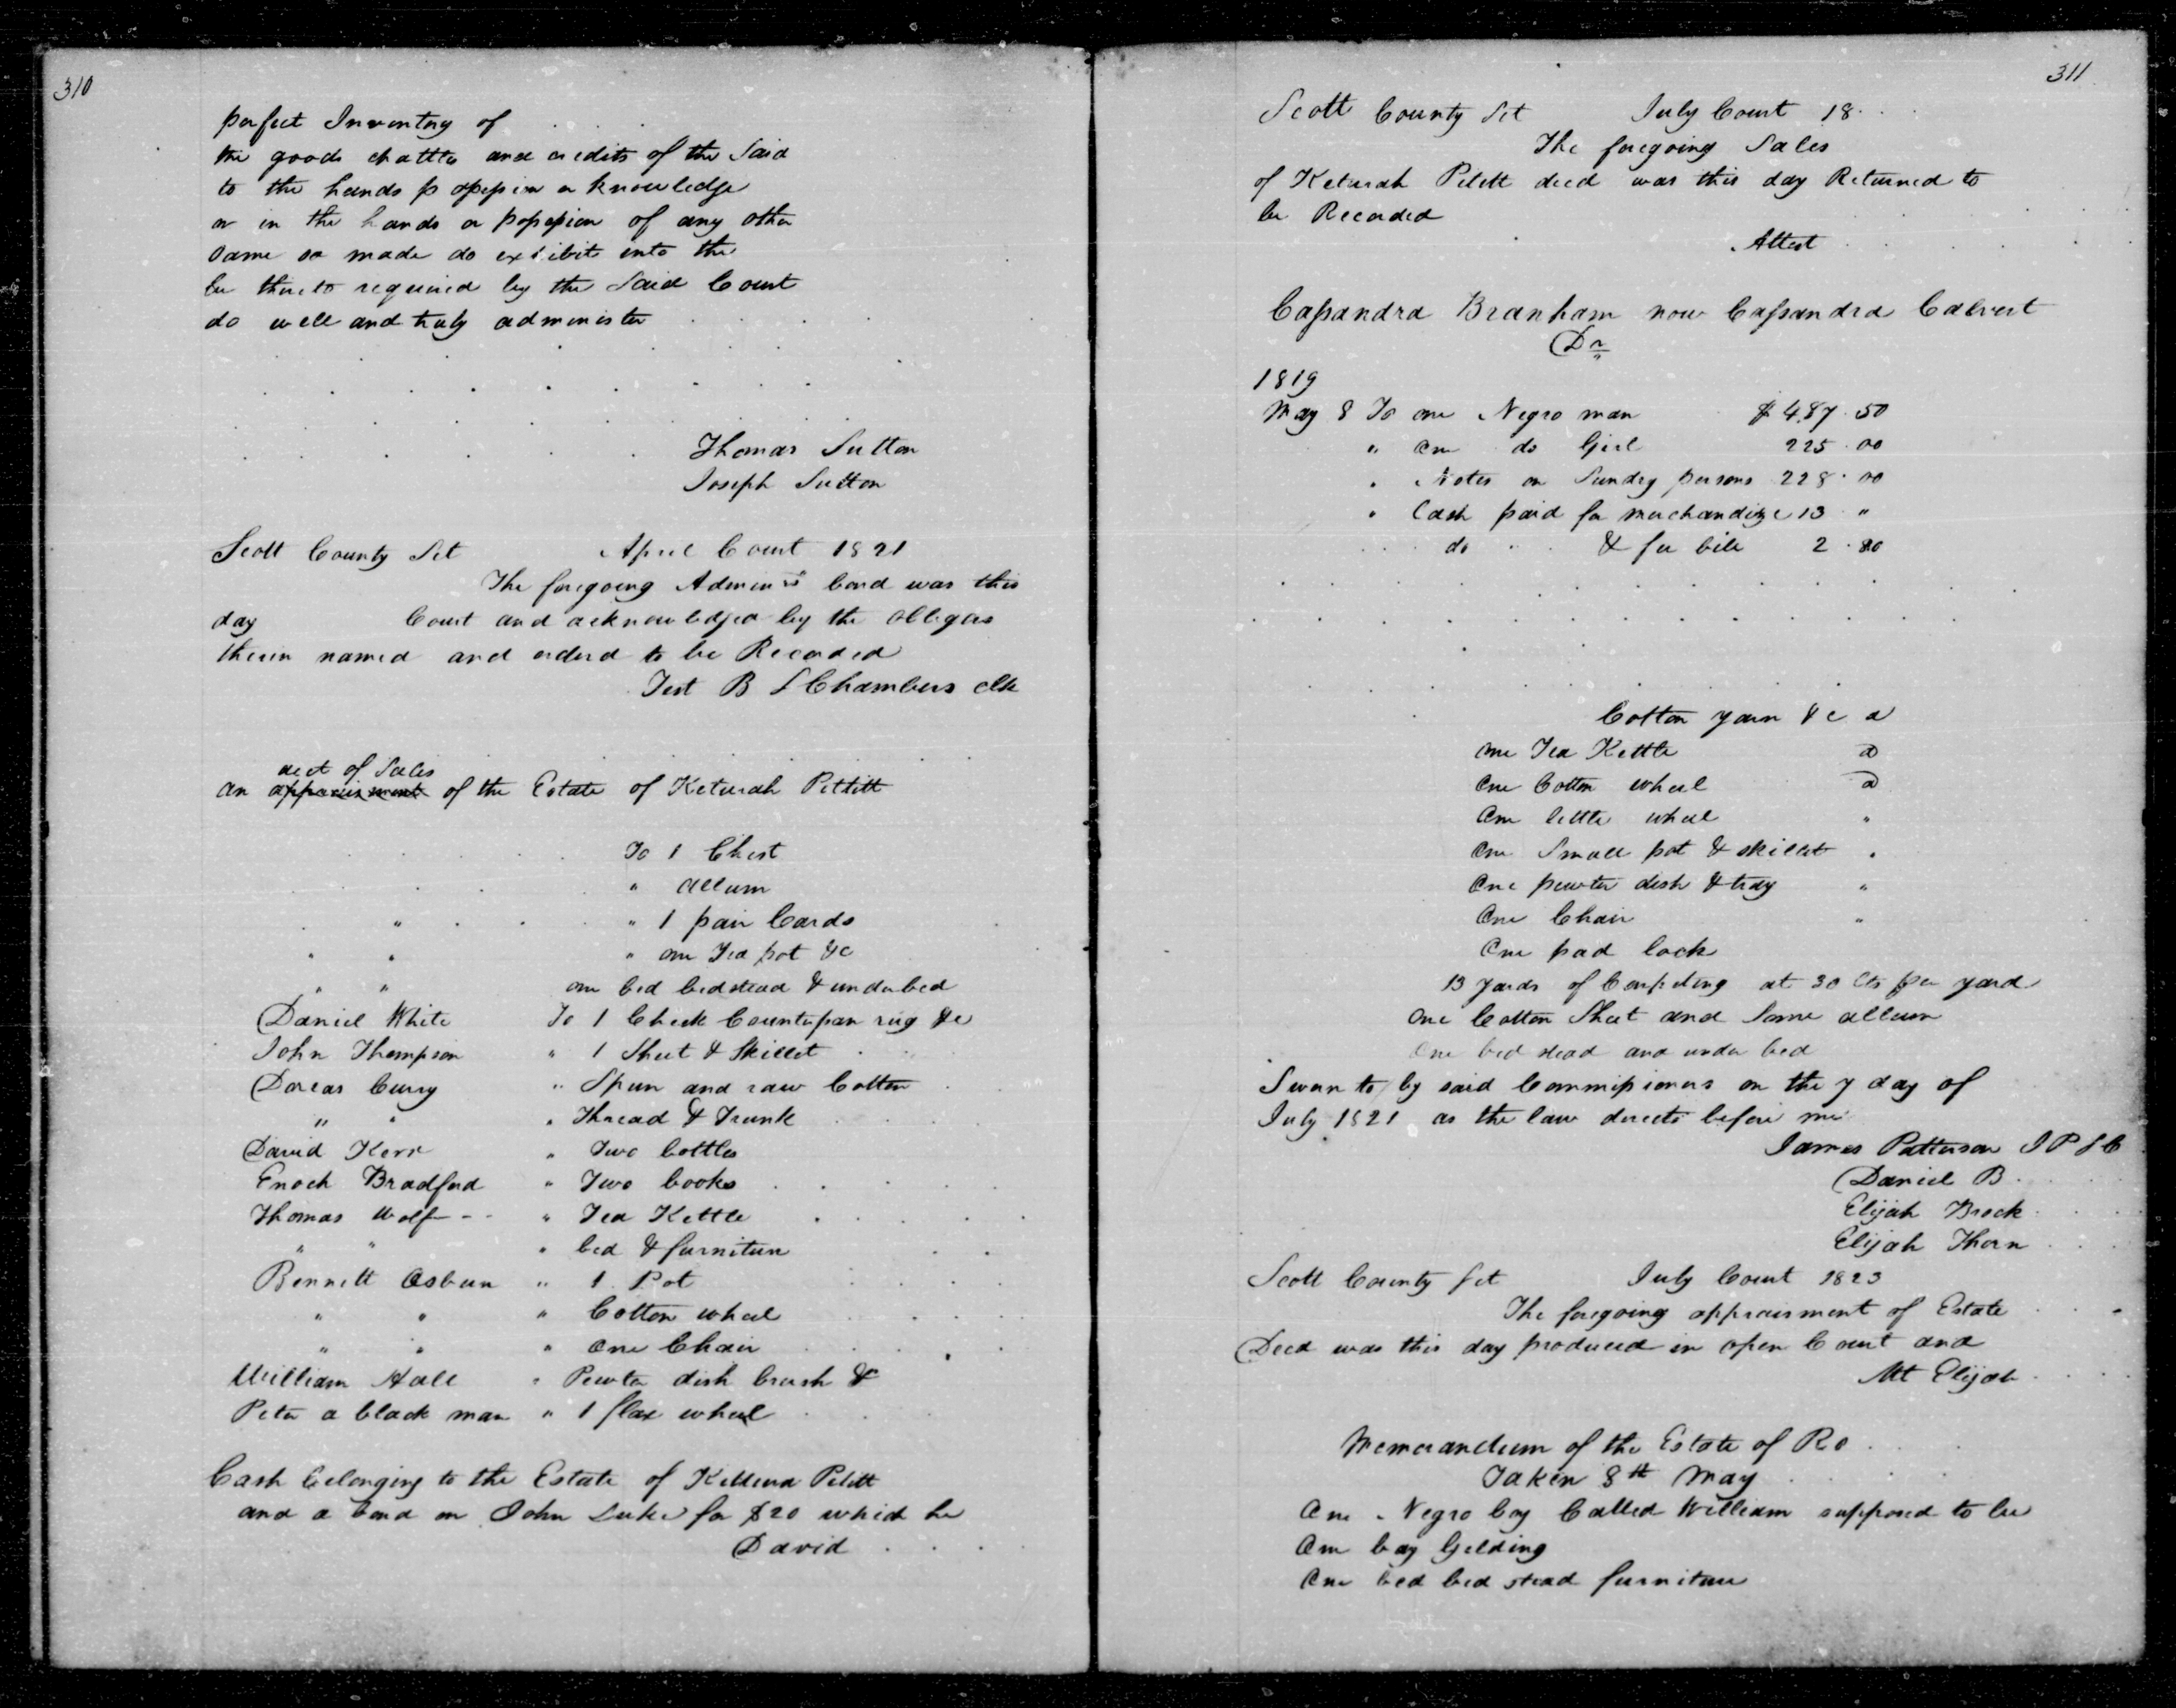 310
perfect Inventory of
the goods chattles and credits of the Said
to the hands possession or knowledge
or in the hands or possession of any other
same so made do exhibit into the
be thereto required by the Said Court
do well and truly administer
Thomas Sutton
Joseph Sutton
Scott County Sct April Court 1821
The foregoing Admin bond was this
day Court and acknowledged by the obligors
therein named and orderd to be Recorded
Test B S Chambers clk
acct of Sales
an appraisment of the Estate of Keturah Pettitt
To 1 Chest
" allum
" " 1 pair Cards
" " " one Tea pot &c
" " one bed bedstead & underbed
Daniel White To 1 Check Counterpan rug &c
John Thompson " 1 Sheet & Skillet
Dorcas Curry " Spun and raw Cotton
" " " Thread & Trunk
David Kerr " Two bottles
Enoch Bradford " Two books
Thomas Wolf-- " Tea Kettle
" " " bed & furniture
Bennett Osburn " 1 Pot
" " " Cotton wheel
" " " One Chair
William Hall " Pewter dish brush &c
Peter a black man " 1 flax wheel
Cash belonging to the Estate of Kitturia Petitt
and a bond on John Luke for $20 which he
David
311
Scott County Sct July Court 18
The foregoing Sales
of Keturah Petitt decd was this day Returned to
be Recorded
Attest
Cassandra Branham now Cassandra Calvert
Dr
1819
May 8 To one Negro man $487.50
" One do Girl 225.00
" Notes on Sundry persons 228.00
" Cash paid for merchandize 13 "
do " & fee bill 2.80
Cotton yarn &c a
one Tea Kettle a
One Cotton wheel a
One little wheel "
One Small pot & skillet "
One pewter dish & tray "
One Chair "
One pad lock
13 yards of Carpeting at 30 Cts per yard
One Cotton Sheet and Some allum
One bed stead and under bed
Sworn to by said Commissioners on the 7 day of
July 1821 as the law directs before me
James Patterson J P S C
Daniel B
Elijah Brock
Elijah Thorn
Scott County Sct July Court 1823
The foregoing appraisment of Estate
Decd was this day produced in open Court and
Att Elijah
Memorandum of the Estate of Ro
Taken 8th May
One Negro boy Called William supposed to be
One bay Gelding
One bed bed stead furniture